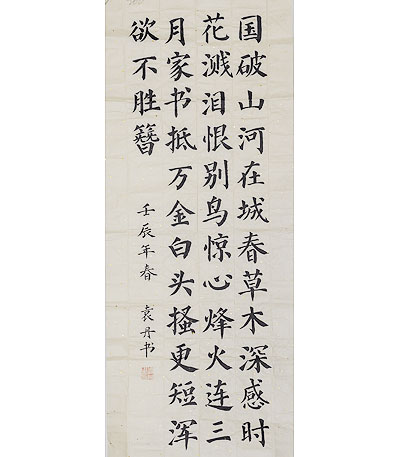 国破山河在城春草木深感时
花溅泪恨别鸟惊心烽火连三
月家书抵万金白头搔更短浑
欲不胜簪
壬辰年春 袁丹书